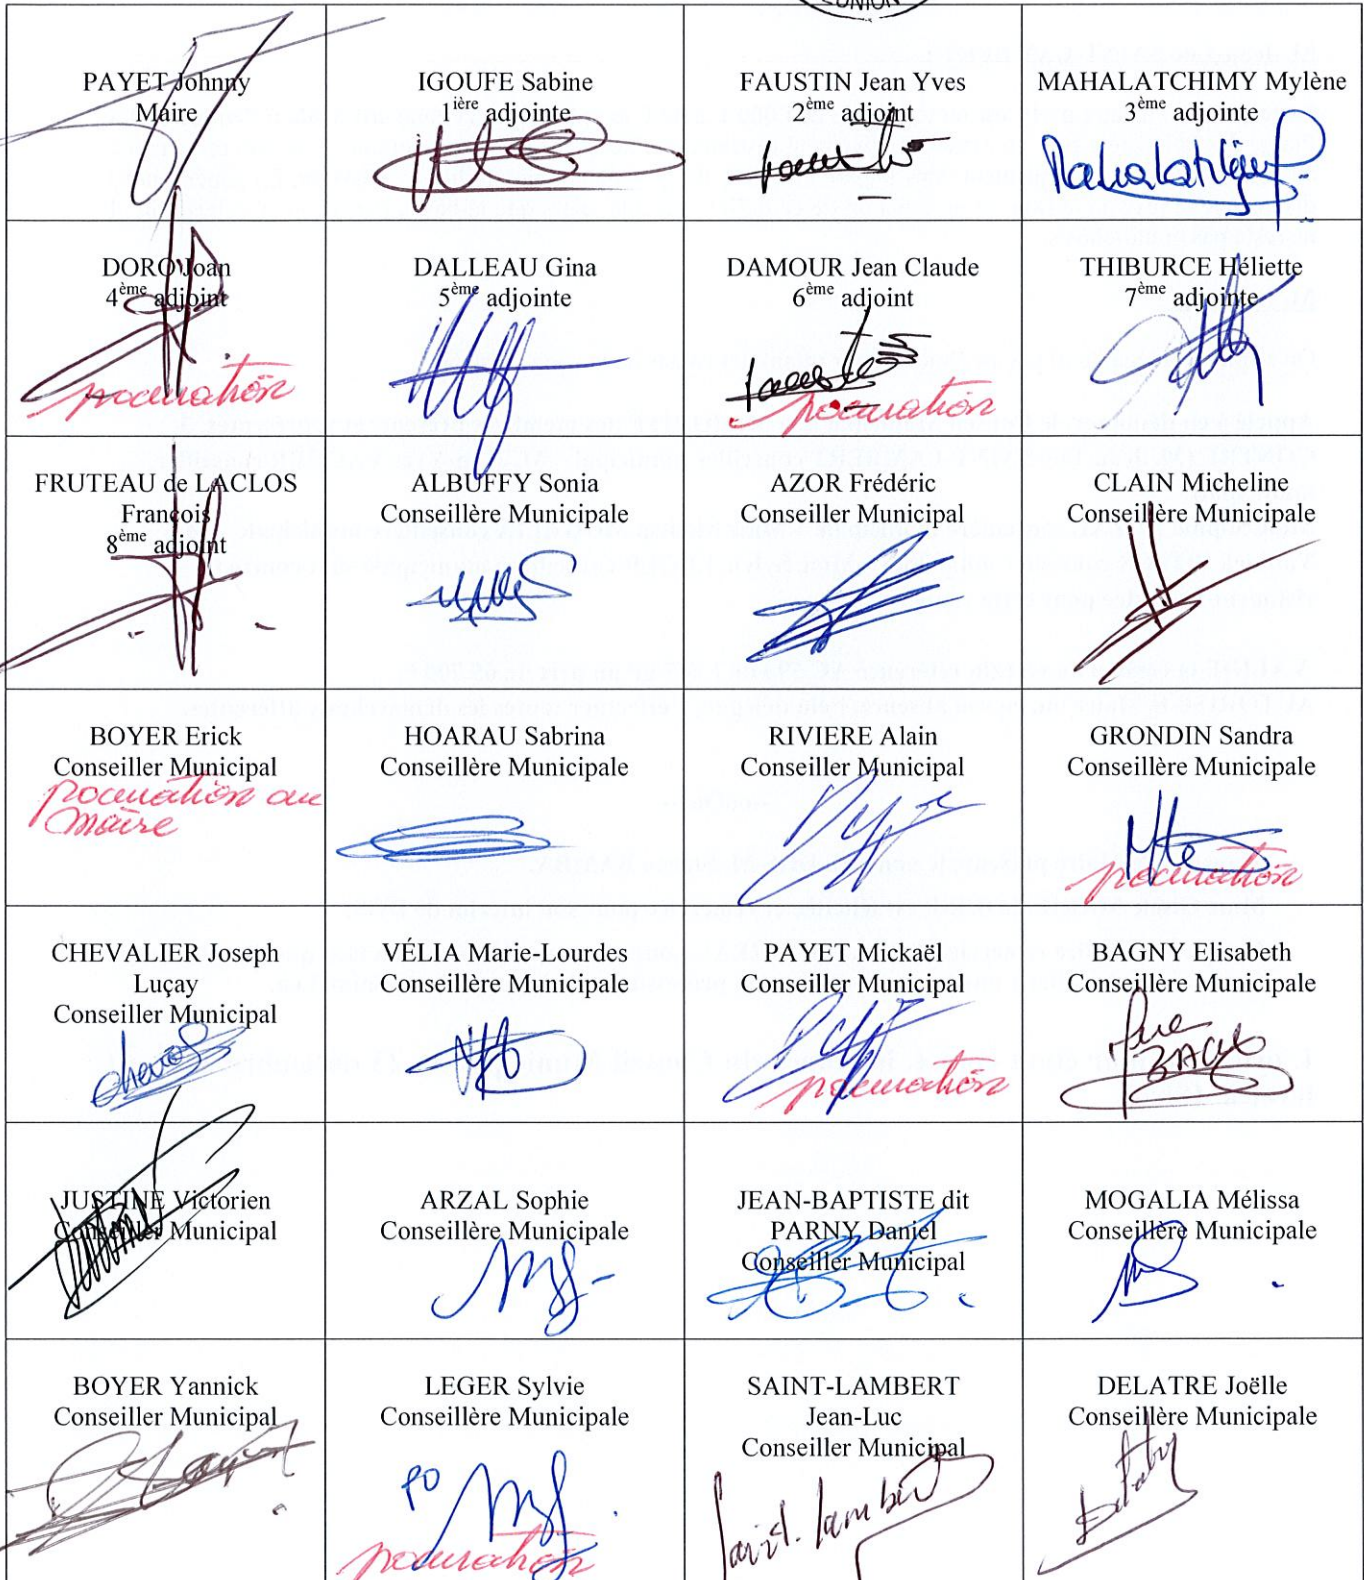 UNION
PAYET Johnny
Maire
IGOUFE Sabine
1ière adjointe
FAUSTIN Jean Yves
2ème adjoint
MAHALATCHIMY Mylène
3ème adjointe
DORO Joan
4ème adjoint
procuration
DALLEAU Gina
5ème adjointe
DAMOUR Jean Claude
6ème adjoint
procuration
THIBURCE Héliette
7ème adjointe
FRUTEAU de LACLOS
François
8ème adjoint
ALBUFFY Sonia
Conseillère Municipale
AZOR Frédéric
Conseiller Municipal
CLAIN Micheline
Conseillère Municipale
BOYER Erick
Conseiller Municipal
procuration au
maire
HOARAU Sabrina
Conseillère Municipale
RIVIERE Alain
Conseiller Municipal
GRONDIN Sandra
Conseillère Municipale
procuration
CHEVALIER Joseph
Luçay
Conseiller Municipal
VÉLIA Marie-Lourdes
Conseillère Municipale
PAYET Mickaël
Conseiller Municipal
procuration
BAGNY Elisabeth
Conseillère Municipale
JUSTINE Victorien
Conseiller Municipal
ARZAL Sophie
Conseillère Municipale
JEAN-BAPTISTE dit
PARNY Daniel
Conseiller Municipal
MOGALIA Mélissa
Conseillère Municipale
BOYER Yannick
Conseiller Municipal
LEGER Sylvie
Conseillère Municipale
PO
procuration
SAINT-LAMBERT
Jean-Luc
Conseiller Municipal
Saint-Lambert
DELATRE Joëlle
Conseillère Municipale